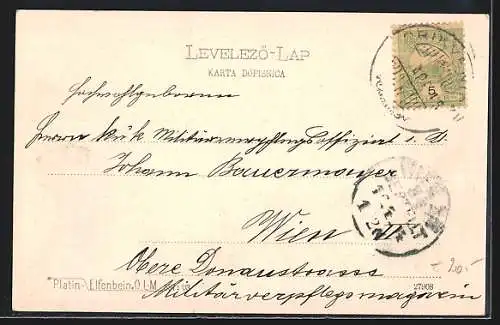 LEVELEZŐ-LAP
KARTA DOPISNICA
5
Hochwohlgeboren
Herrn k.u.k. Militärverpflegsoffizial i. D.
Johann Bauermayer
Wien II/
Obere Donaustrasse
Militärverpflegsmagazin
Platin-Elfenbein. O.L.M.
27908